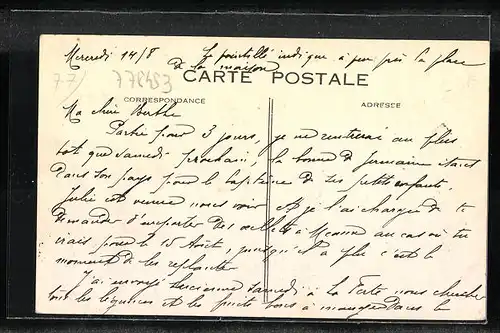 Mercredi 14/8 Le pointillé indique à peu près la place
de la maison
77/ 778483
CARTE POSTALE
CORRESPONDANCE
ADRESSE
Ma chère Berthe
Partie pour 3 jours, je ne rentrerai au plus
tôt que samedi prochain, la bonne de Germaine étant
dans son pays pour le baptême de ses petits enfants.
Julie est venue nous voir et je l'ai chargée de te
demander d'emporter des œillets à au cas où tu
irais pour le 15 Août, puisqu'il a plu c'est le
moment de les replanter
J'ai envoyé Lucienne samedi. La nous chercher
tous les légumes et les fruits bons à manger dans le